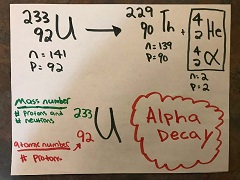 233 92 U → 229 90 Th + 4 2 He
4 2 α
n = 141
p = 92
n = 139
p = 90
n = 2
p = 2
mass number
# protons and
# neutrons
atomic number
# protons
233 92 U
Alpha
Decay